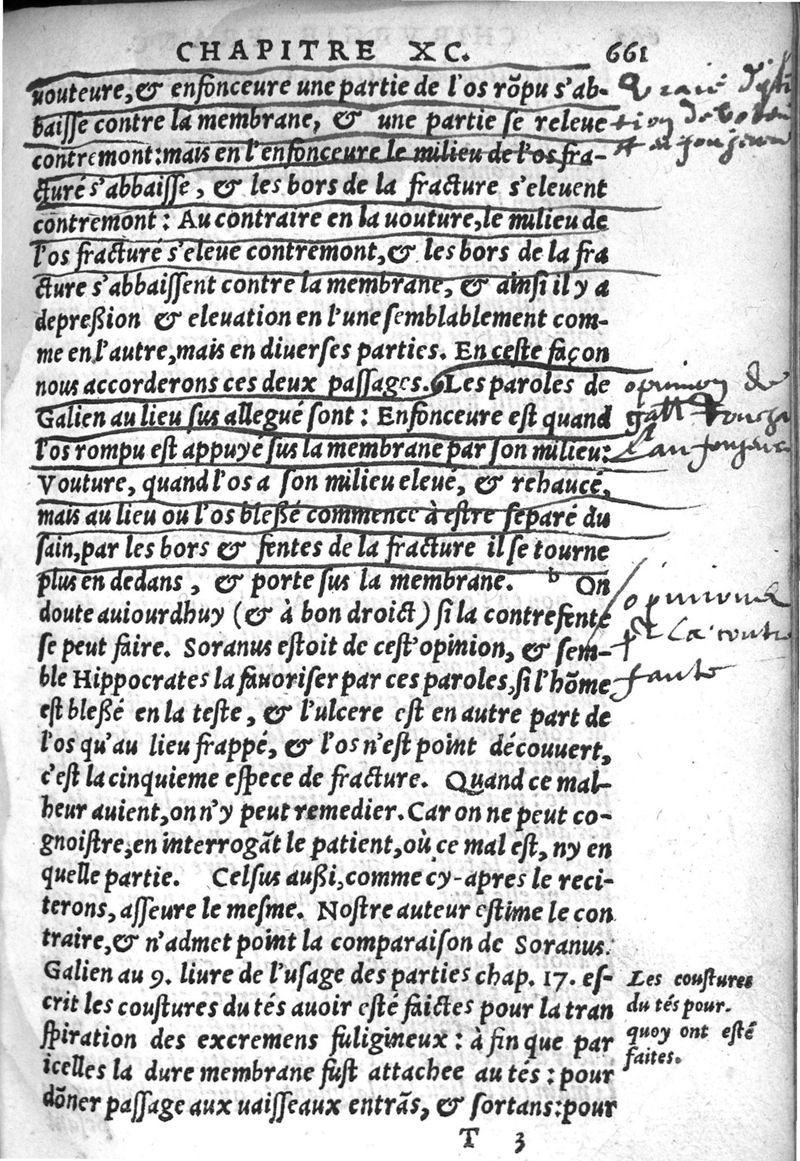 CHAPITRE XC. 661
uouteure, & enfonceure une partie de l'os rõpu s'ab-
baisse contre la membrane, & une partie se releue
contremont: mais en l'enfonceure le milieu de l'os fra-
cturé s'abbaisse, & les bors de la fracture s'eleuent
contremont: Au contraire en la uouture, le milieu de
l'os fracturé s'eleue contremont, & les bors de la fra
cture s'abbaissent contre la membrane, & ainsi il y a
depreßion & eleuation en l'une semblablement com-
me en l'autre, mais en diuerses parties. En ceste façon
nous accorderons ces deux passages. Les paroles de
Galien au lieu sus allegué sont: Enfonceure est quand
l'os rompu est appuyé sus la membrane par son milieu:
Vouture, quand l'os a son milieu eleué, & rehaucé,
mais au lieu ou l'os bleßé commence à estre separé du
sain, par les bors & fentes de la fracture il se tourne
plus en dedans, & porte sus la membrane. b On
doute auiourdhuy (& à bon droict) si la contrefente
se peut faire. Soranus estoit de cest'opinion, & sem-
ble Hippocrates la fauoriser par ces paroles, si l'hõme
est bleßé en la teste, & l'ulcere est en autre part de
l'os qu'au lieu frappé, & l'os n'est point découuert,
c'est la cinquieme espece de fracture. Quand ce mal-
heur auient, on n'y peut remedier. Car on ne peut co-
gnoistre, en interrogãt le patient, où ce mal est, ny en
quelle partie. Celsus außi, comme cy-apres le reci-
terons, asseure le mesme. Nostre auteur estime le con
traire, & n'admet point la comparaison de Soranus.
Galien au 9. liure de l'usage des parties chap. 17. es-
crit les coustures du tés auoir esté faictes pour la tran
spiration des excremens fuligineux: à fin que par
icelles la dure membrane fust attachee au tés: pour
dõner passage aux uaisseaux entrãs, & sortans: pour
T 3
opinion de
gall
opinione
la contre
fante
Les coustures
du tés pour-
quoy ont esté
faites.